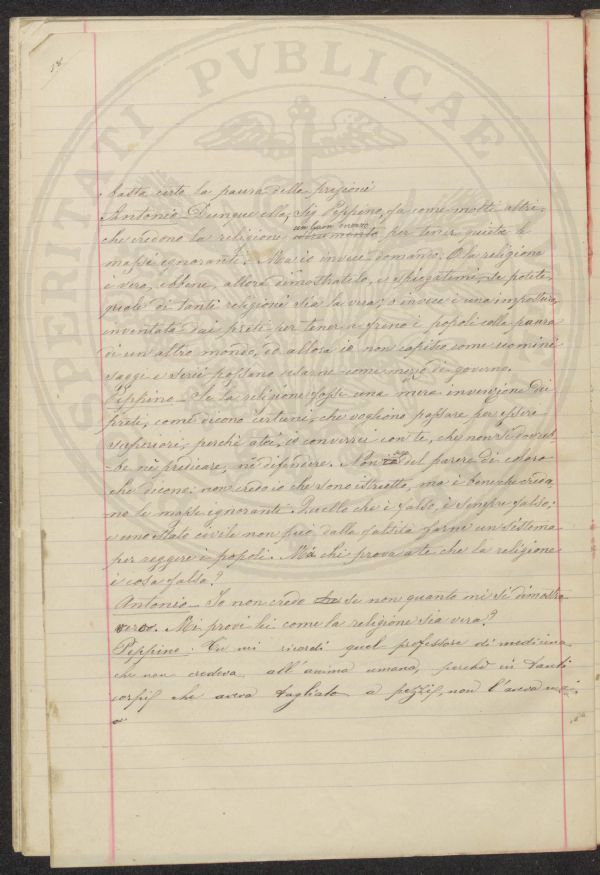 18.
basta certo la paura della prigione
Antonio. Dunque ella, Sig. Peppino, fa come molti altri,
che credono la religione un buon mezzo per tener quiete le
masse ignoranti. Ma io invece domando: O la religione
è vera, ebbene, allora dimostratelo, e spiegatemi, se potete,
quale di tanti religioni sia la vera; o invece è una impostura
inventata dai preti per tener a freno i popoli colla paura
di un altro mondo, ed allora io non capisco come uomini
saggi e serii possano usarne come mezzo di governo.
Peppino – Se la religione fosse una mera invenzione dei
preti, come dicono certuni, che vogliono passare per essere
superiori, perchè atei, io converrei con te, che non si dovreb-
be nè predicare, nè difendere. Non del parere di coloro
che dicono: non credo io che sono istrutto, ma è bene che creda
no le masse ignoranti. Quello che è falso, è sempre falso;
e uno Stato civile non può dalla falsità farne un sistema
per reggere i popoli. Ma chi prova a te che la religione
è cosa falsa?
Antonio – Io non credo se non quanto mi si dimostra
vero. Mi provi lei come la religione sia vera?
Peppino – Tu mi ricordi quel professore di medicina,
che non credeva all'anima umana, perchè in tanti
corpi che aveva tagliato a pezzi, non l'aveva mai
HOSPITALITATI PVBLICAE